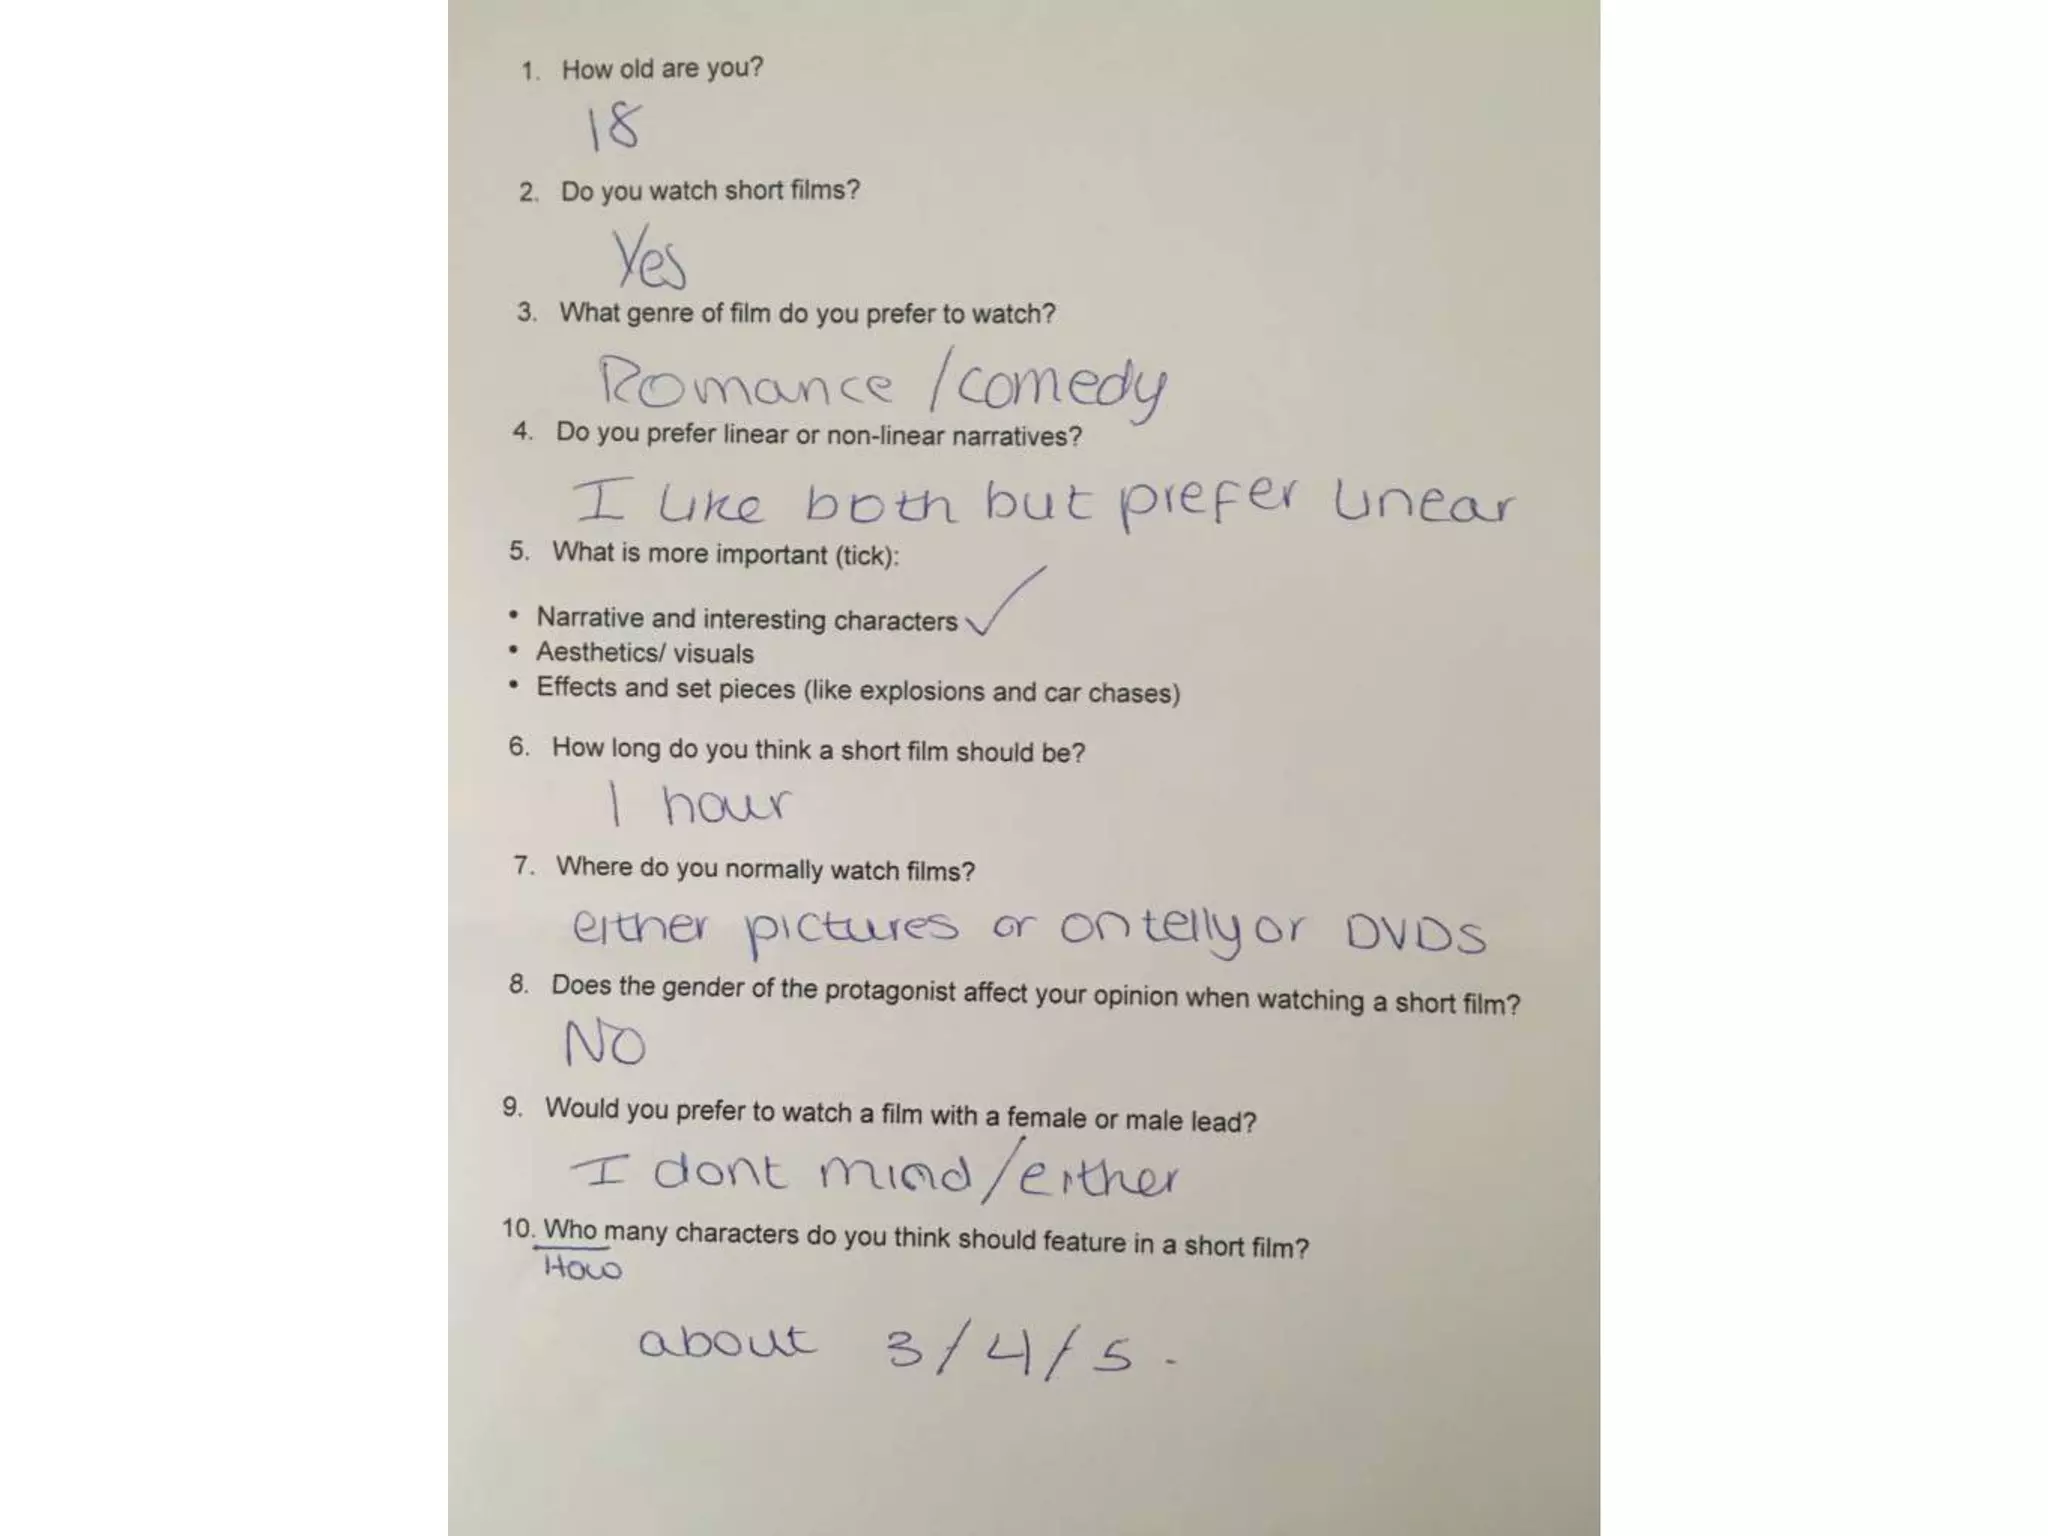 1. How old are you?
18
2. Do you watch short films?
Yes
3. What genre of film do you prefer to watch?
Romance / comedy
4. Do you prefer linear or non-linear narratives?
I like both but prefer linear
5. What is more important (tick):
• Narrative and interesting characters ✓
• Aesthetics/ visuals
• Effects and set pieces (like explosions and car chases)
6. How long do you think a short film should be?
1 hour
7. Where do you normally watch films?
either pictures or on telly or DVDs
8. Does the gender of the protagonist affect your opinion when watching a short film?
NO
9. Would you prefer to watch a film with a female or male lead?
I dont mind/either
10. Who many characters do you think should feature in a short film?
How
about 3/4/5.